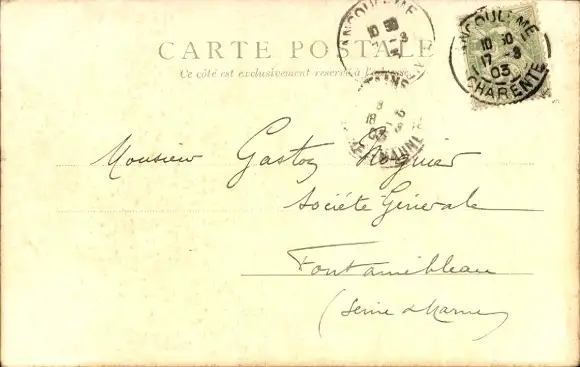 CARTE POSTALE
Ce côté est exclusivement réservé à l'adresse
ANGOULEME
10 30
17 - 8
ANGOULEME
10 30
17 - 8
03
CHARENTE
8
18
MARNE
Monsieur Gaston
Société Générale
Fontainebleau
(Seine & Marne)